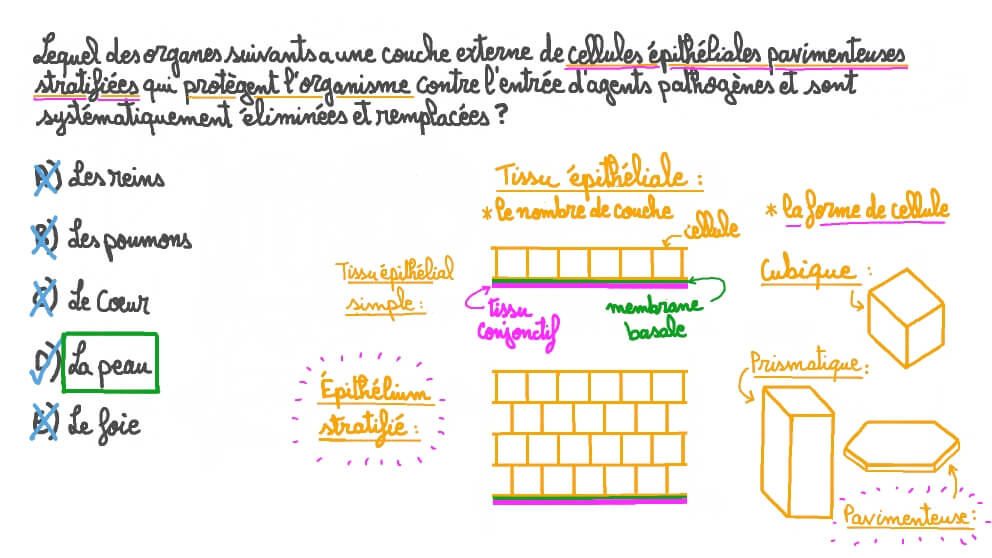 Lequel des organes suivants a une couche externe de cellules épithéliales pavimenteuses
stratifiées qui protègent l'organisme contre l'entrée d'agents pathogènes et sont
systématiquement éliminées et remplacées ?
A) Les reins
B) Les poumons
C) Le Cœur
D) La peau
E) Le foie
Tissu épithéliale :
* le nombre de couche
cellule
Tissu épithélial
simple :
tissu
conjonctif
membrane
basale
Épithélium
stratifié :
* la forme de cellule
Cubique :
Prismatique :
Pavimenteuse :